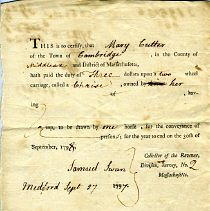 THIS is to certify, that Mary Cutter
of the Town of Cambridge, in the County of
Middlesex and District of Massachusetts,
hath paid the duty of Three dollars upon a two wheel
carriage, called a Chaise, owned by her
of
having
top, to be drawn by one horse, for the conveyance of
persons, for the year to end on the 30th of
September, 1798
Samuel Swan Collector of the Revenue,
Division, Survey, No. 2
Massachusetts.
Medford Sept 27 1797